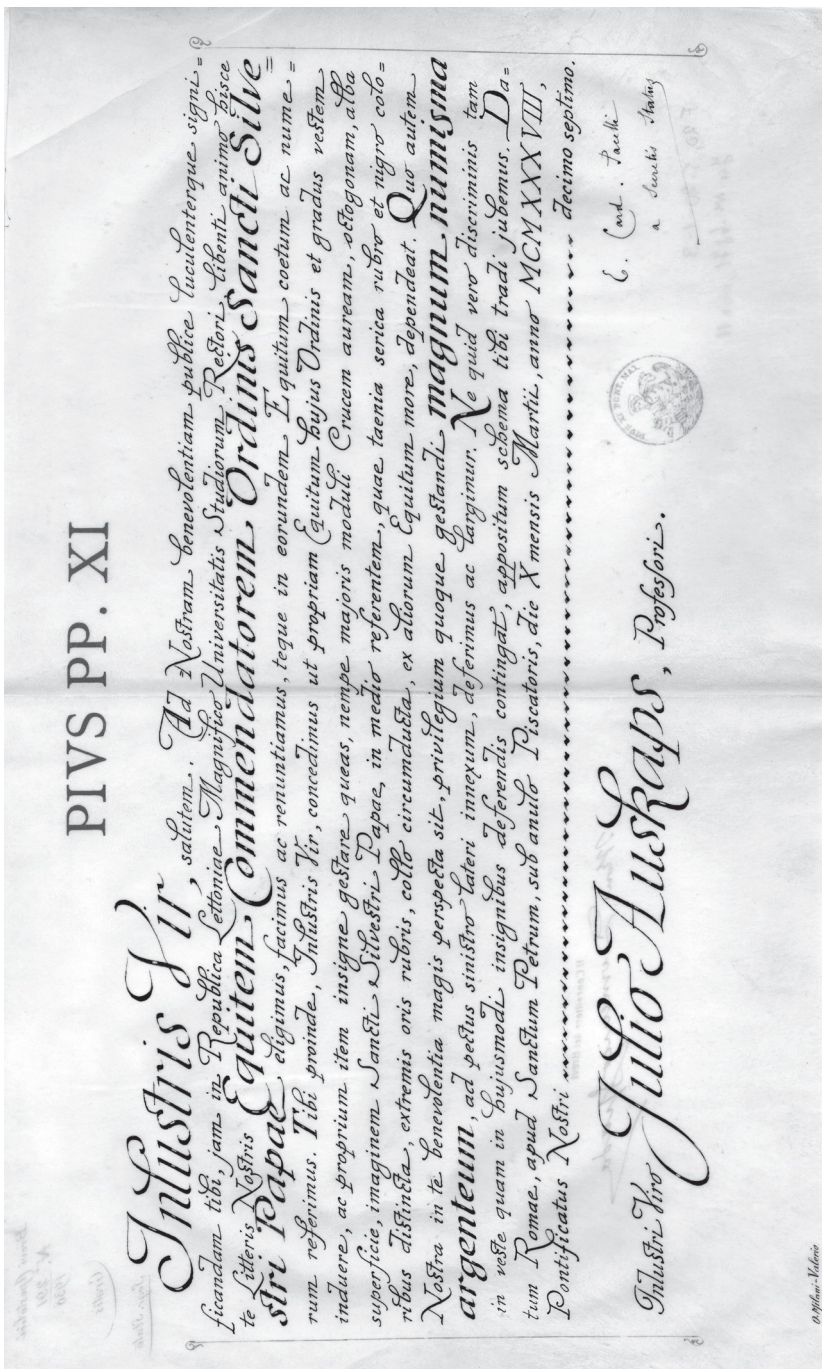 PIVS PP. XI
Inlustris Vir, salutem. Ad Nostram benevolentiam publice luculenterque signi=
ficandam tibi, jam in Republica Lettoniae Magnifico Universitatis Studiorum Rectori, libenti animo hisce
te Litteris Nostris Equitem Commendatorem Ordinis Sancti Silve=
stri Papae eligimus, facimus ac renuntiamus, teque in eorundem Equitum coetum ac nume=
rum referimus. Tibi proinde, Inlustris Vir, concedimus ut propriam Equitum hujus Ordinis et gradus vestem
induere, ac proprium item insigne gestare queas, nempe majoris moduli Crucem auream, octogonam, alba
superficie, imaginem Sancti Silvestri Papae, in medio referentem, quae taenia serica rubro et nigro colo=
ribus distincta, extremis oris rubris, collo circumducta, ex aliorum Equitum more, dependeat. Quo autem
Nostra in te benevolentia magis perspecta sit, privilegium quoque gestandi magnum numisma
argenteum, ad pectus sinistro lateri innexum, deferimus ac largimur. Ne quid vero discriminis tam
in veste quam in hujusmodi insignibus deferendis contingat, appositum schema tibi tradi jubemus. Da=
tum Romae, apud Sanctum Petrum, sub anulo Piscatoris, die X mensis Martii, anno MCMXXXVIII,
Pontificatus Nostri decimo septimo.
E. Card. Pacelli
a Secretis Status
Inlustri Viro Julio Auskaps, Professori.
O. Milani-Valerio